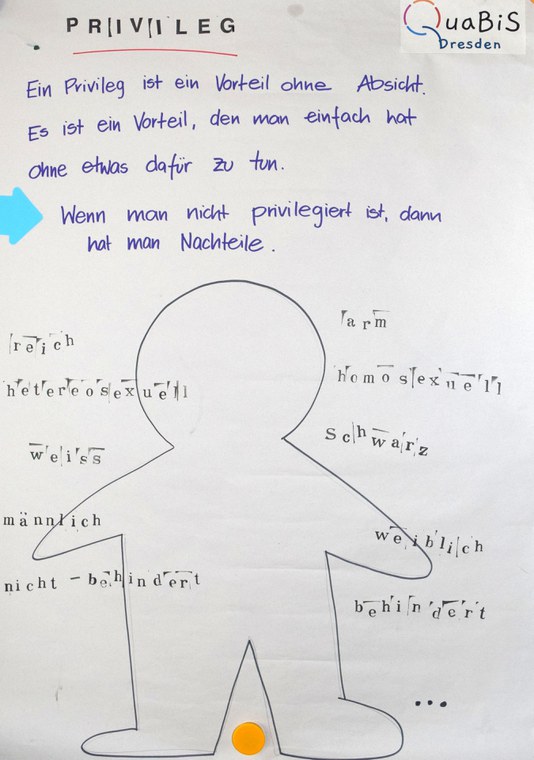 PRIVILEG
QuaBiS
Dresden
Ein Privileg ist ein Vorteil ohne Absicht.
Es ist ein Vorteil, den man einfach hat
ohne etwas dafür zu tun.
Wenn man nicht privilegiert ist, dann
hat man Nachteile.
arm
reich
homosexuell
hetereosexuell
schwarz
weiss
männlich
weiblich
nicht - behindert
behindert
...